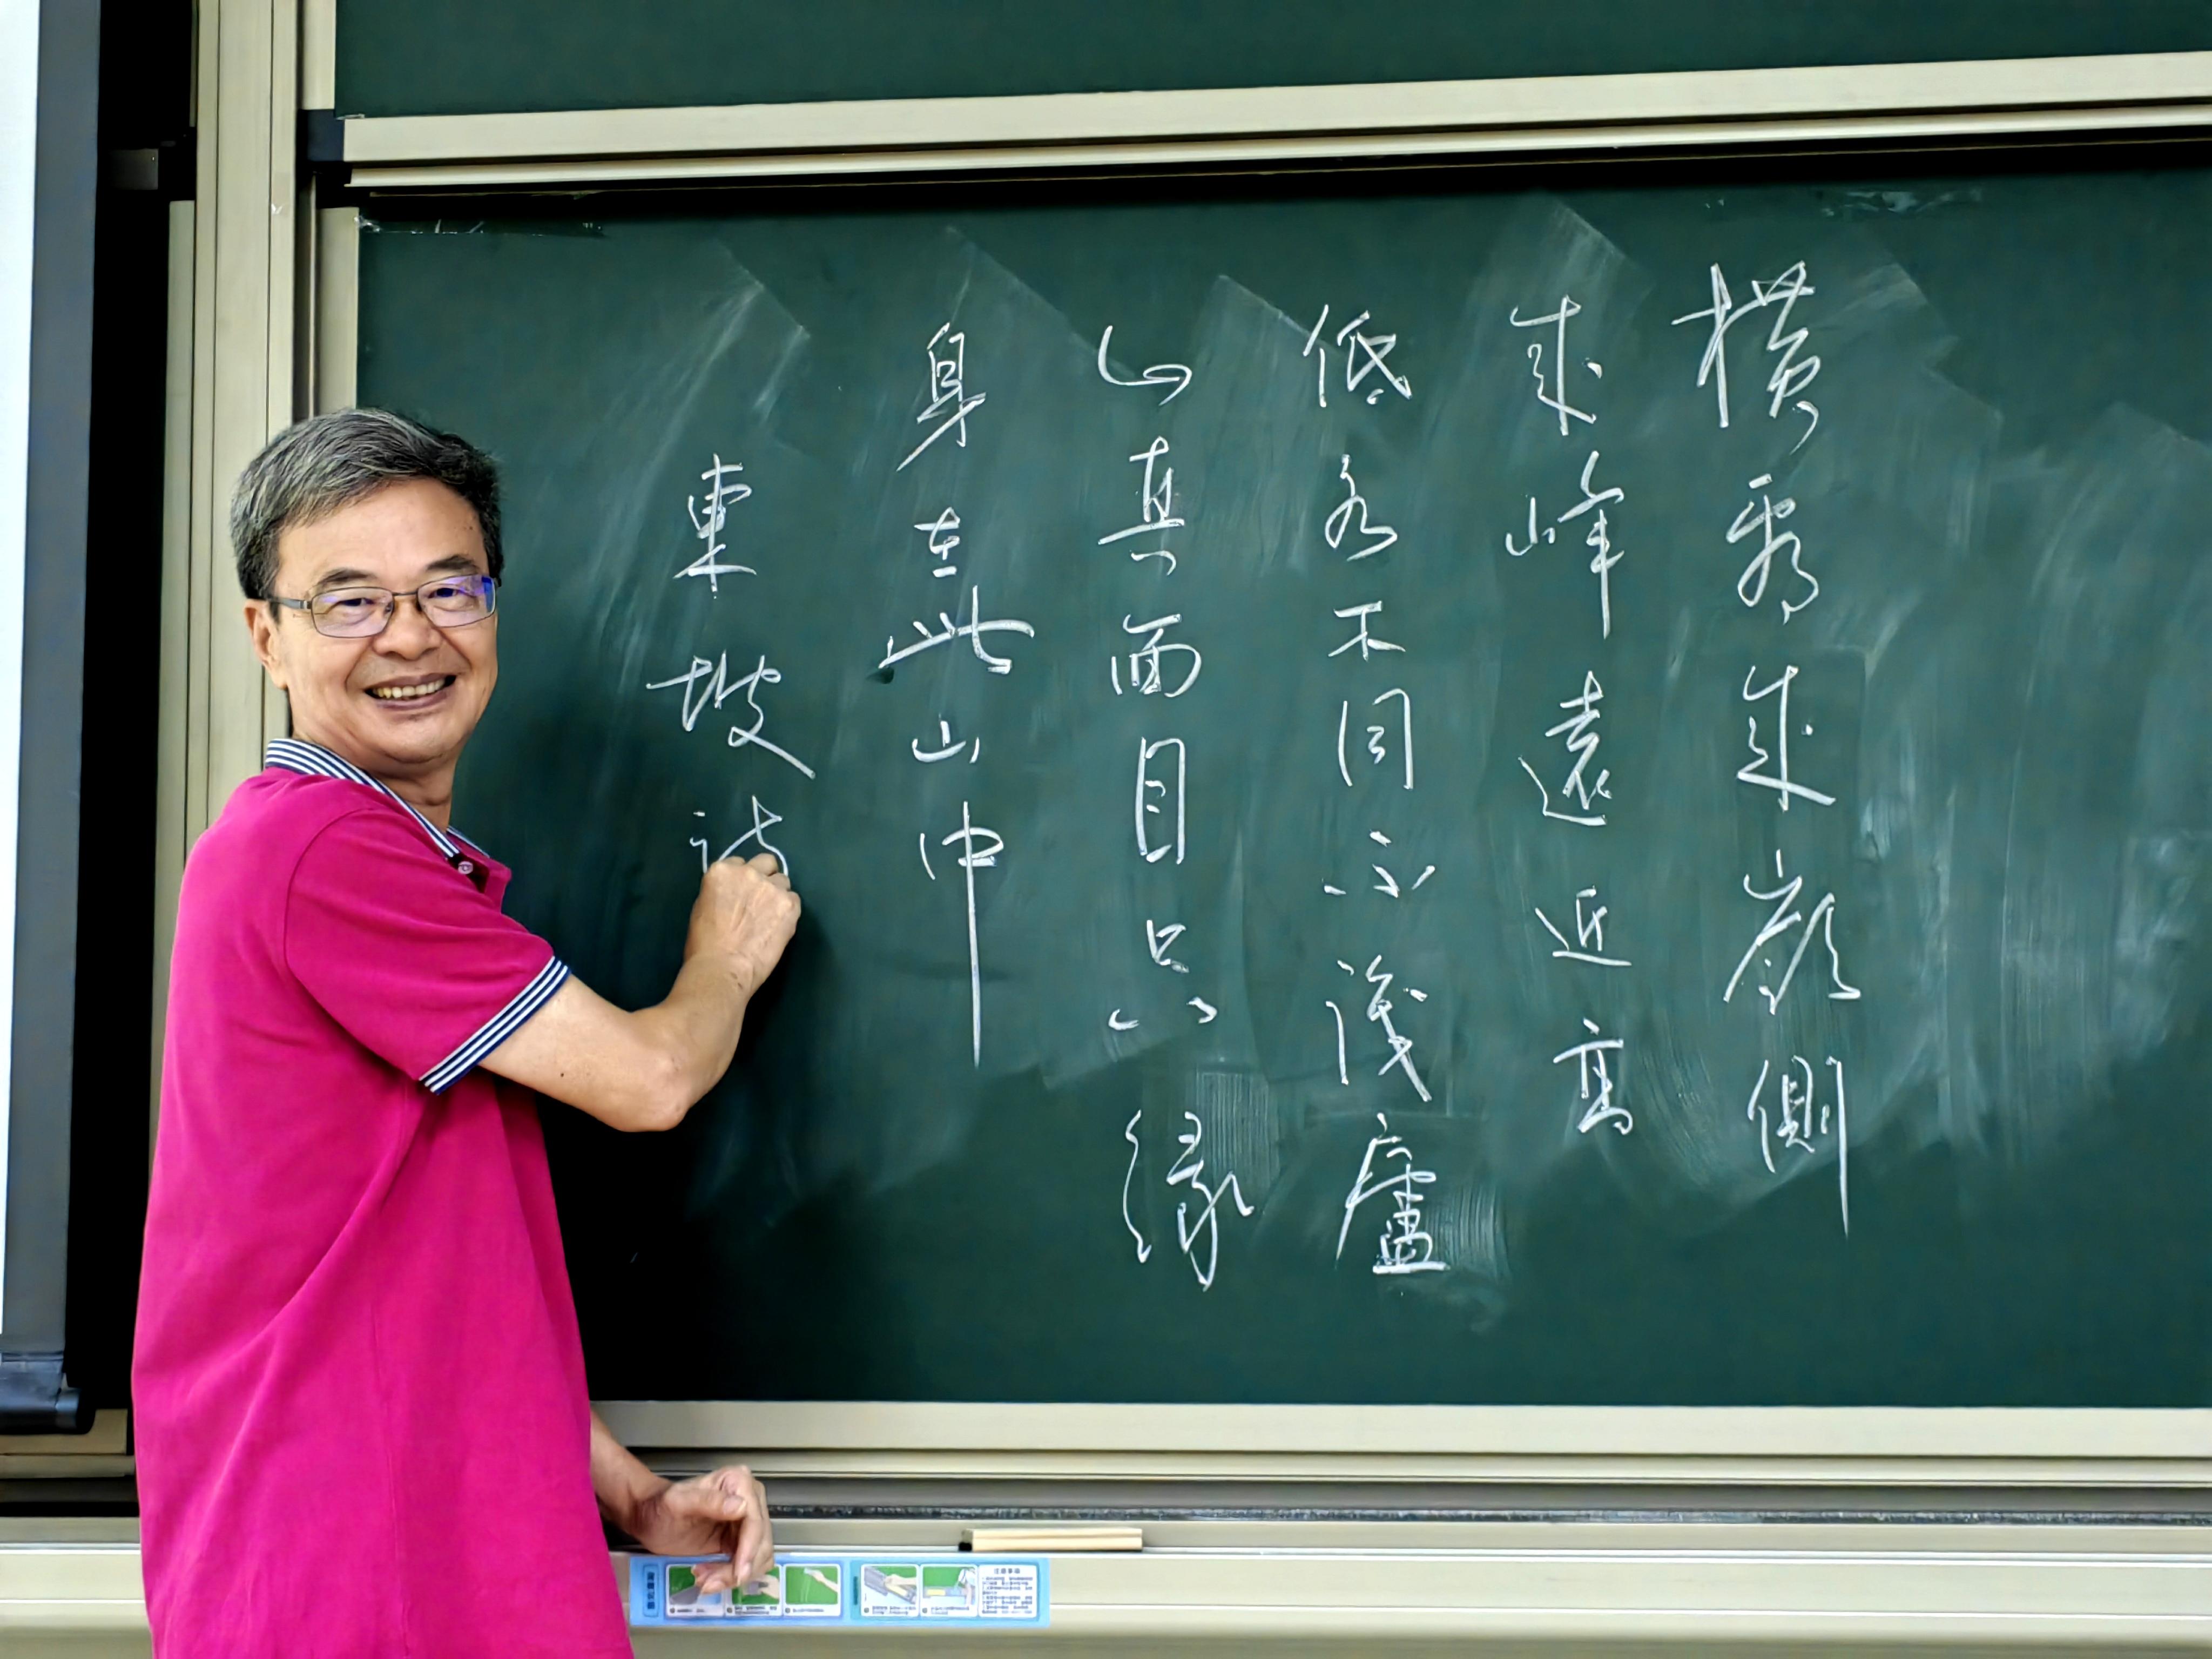 橫看成嶺側
成峰遠近高
低各不同不識廬
山真面目只緣
身在此山中
東坡詩
注意事項